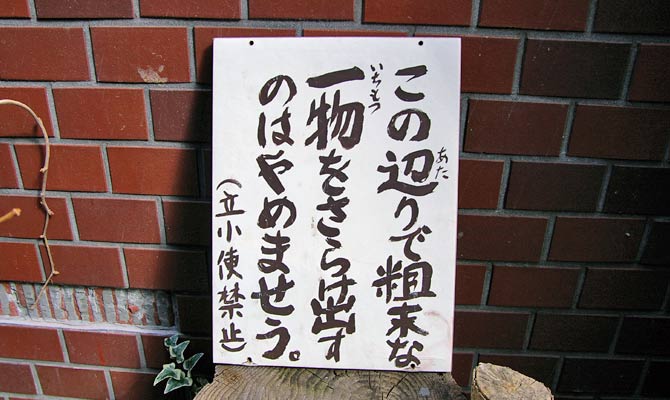 この辺りで粗末な
一物をさらけ出す
のはやめませう。
(立小使禁止)
あた
いちもつ